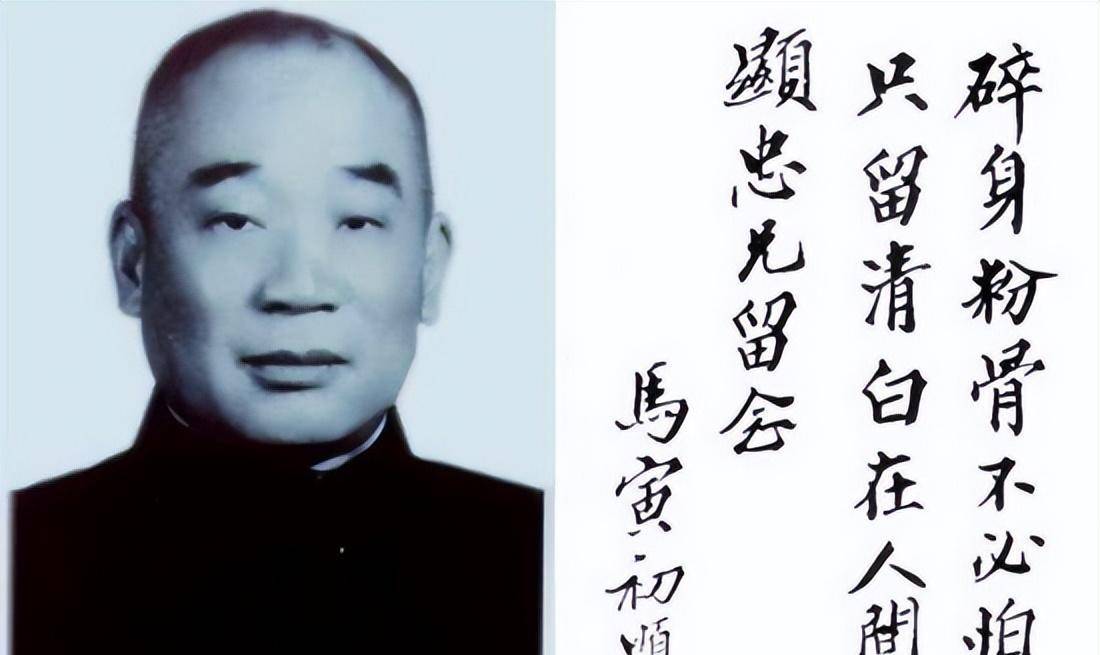 碎身粉骨不必怕
只留清白在人間
顯忠兄留念
馬寅初